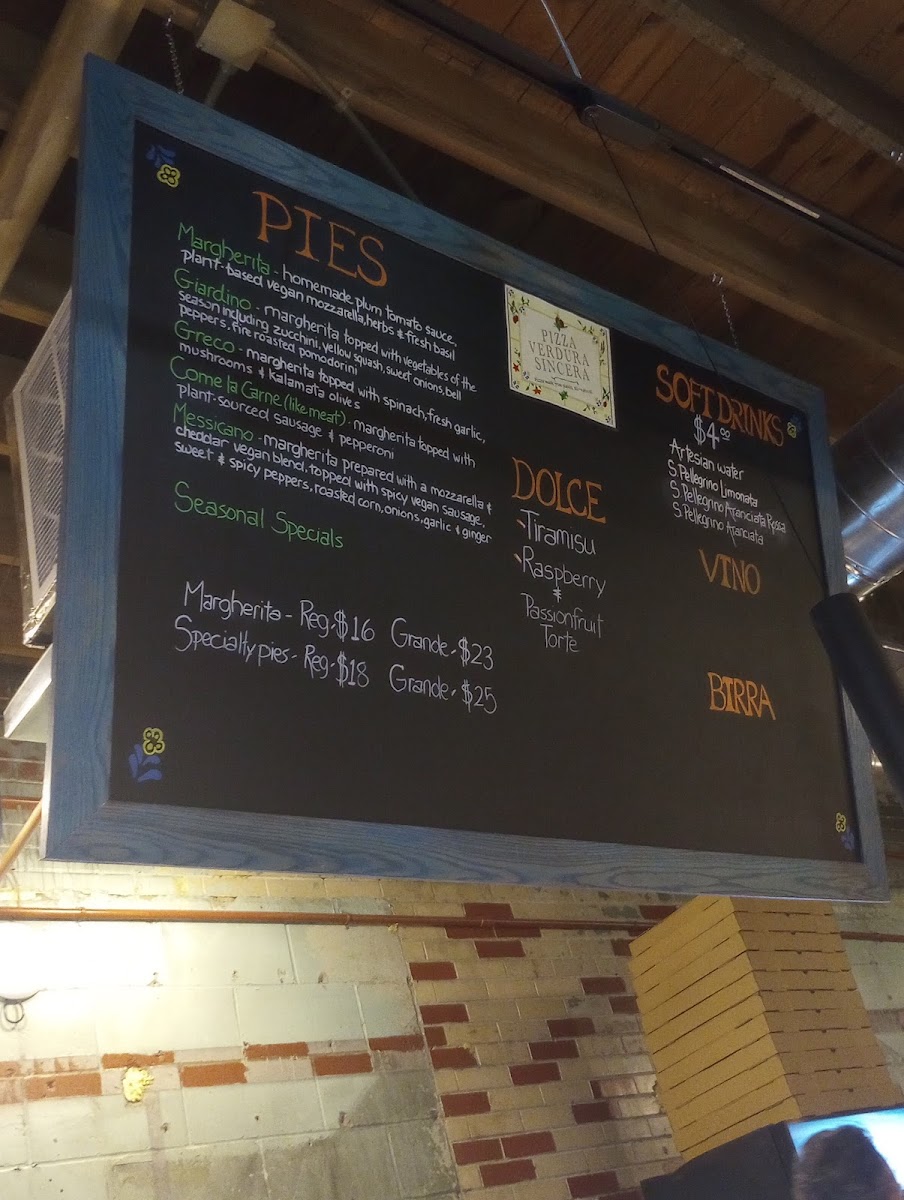 PIES
Margherita - homemade plum tomato sauce,
plant-based vegan mozzarella, herbs & fresh basil
Giardino - margherita topped with vegetables of the
season including zucchini, yellow squash, sweet onions, bell
peppers, fire roasted pomodorini
Greco - margherita topped with spinach, fresh garlic,
mushrooms & kalamata olives
Come la Carne (like meat) - margherita topped with
plant-sourced sausage & pepperoni
Messicano - margherita prepared with a mozzarella &
cheddar vegan blend, topped with spicy vegan sausage,
sweet & spicy peppers, roasted corn, onions, garlic & ginger
Seasonal Specials
Margherita - Reg-$16 Grande-$23
Specialty pies - Reg-$18 Grande-$25
PIZZA
VERDURA
SINCERA
DOLCE
Tiramisu
Raspberry
&
Passionfruit
Torte
SOFT DRINKS
$4.00
Artesian water
S. Pellegrino Limonata
S. Pellegrino Aranciata Rossa
S. Pellegrino Aranciata
VINO
BIRRA